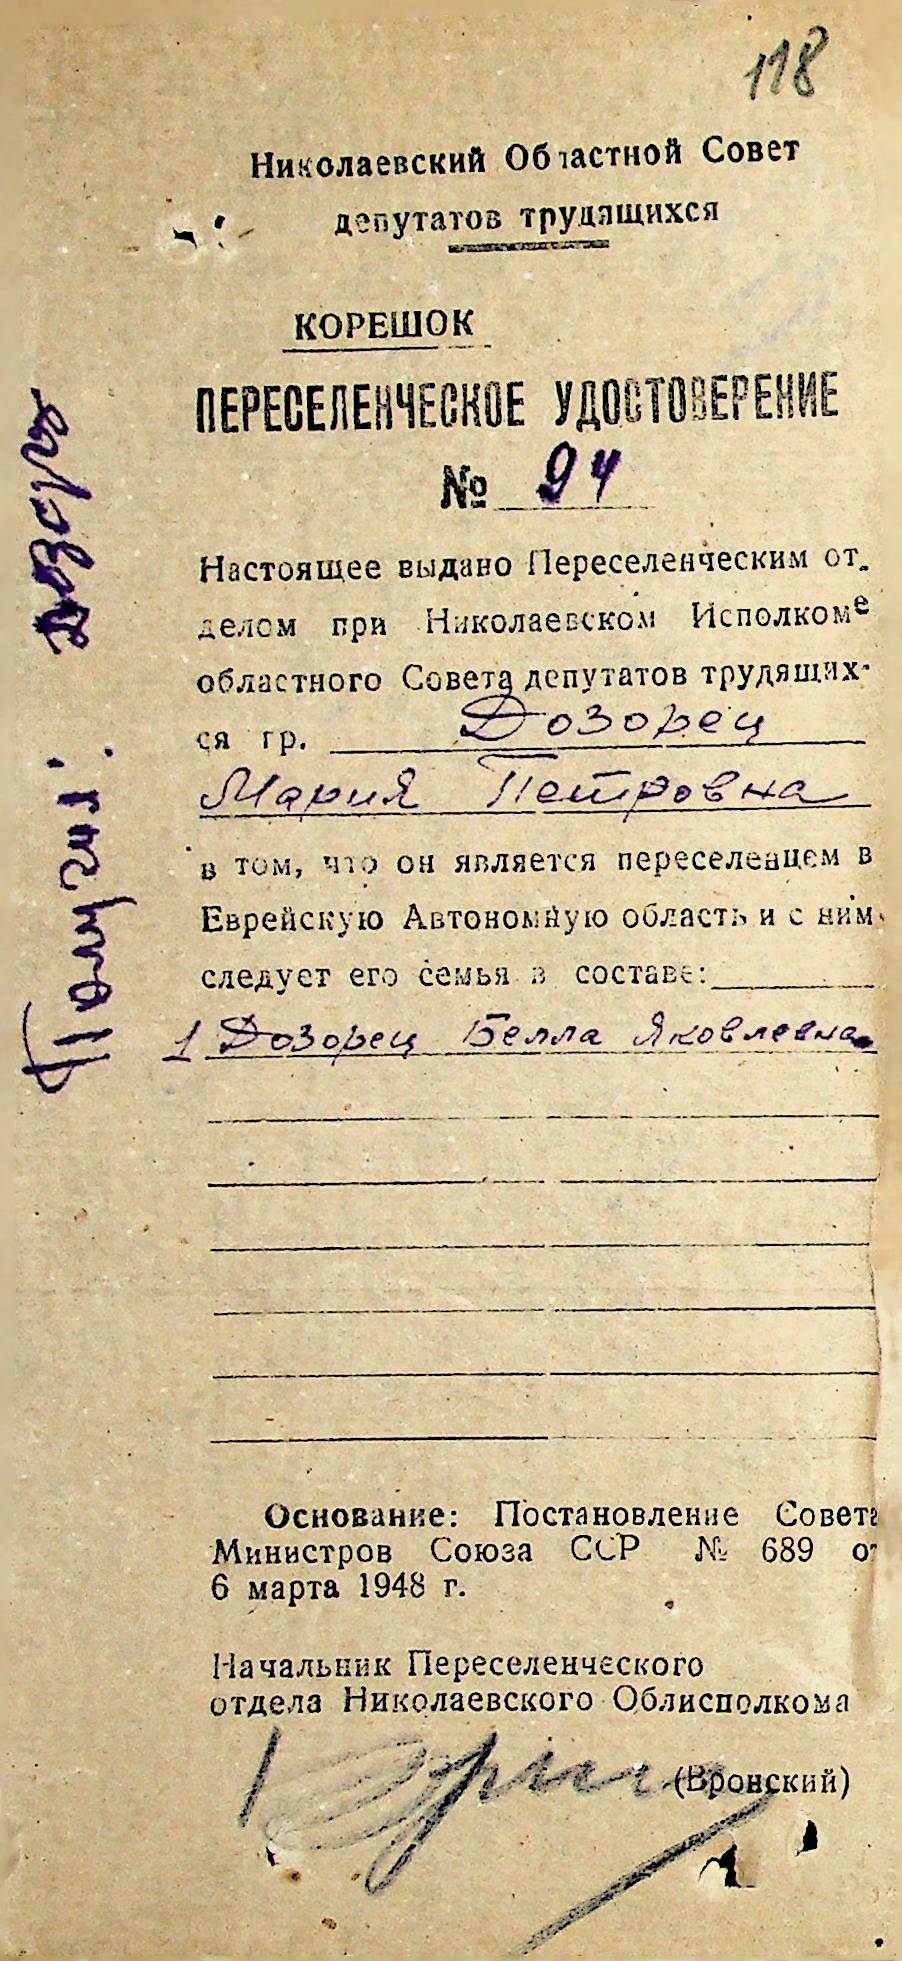 118
Николаевский Областной Совет
депутатов трудящихся
КОРЕШОК
ПЕРЕСЕЛЕНЧЕСКОЕ УДОСТОВЕРЕНИЕ
№ 94
Настоящее выдано Переселенческим от-
делом при Николаевском Исполкоме
областного Совета депутатов трудящих-
ся гр. Дозорец
Мария Петровна
в том, что он является переселенцем в
Еврейскую Автономную область и с ним
следует его семья в составе:
1 Дозорец Белла Яковлевна
Основание: Постановление Совета
Министров Союза ССР № 689 от
6 марта 1948 г.
Начальник Переселенческого
отдела Николаевского Облисполкома
(Вронский)
Получил: